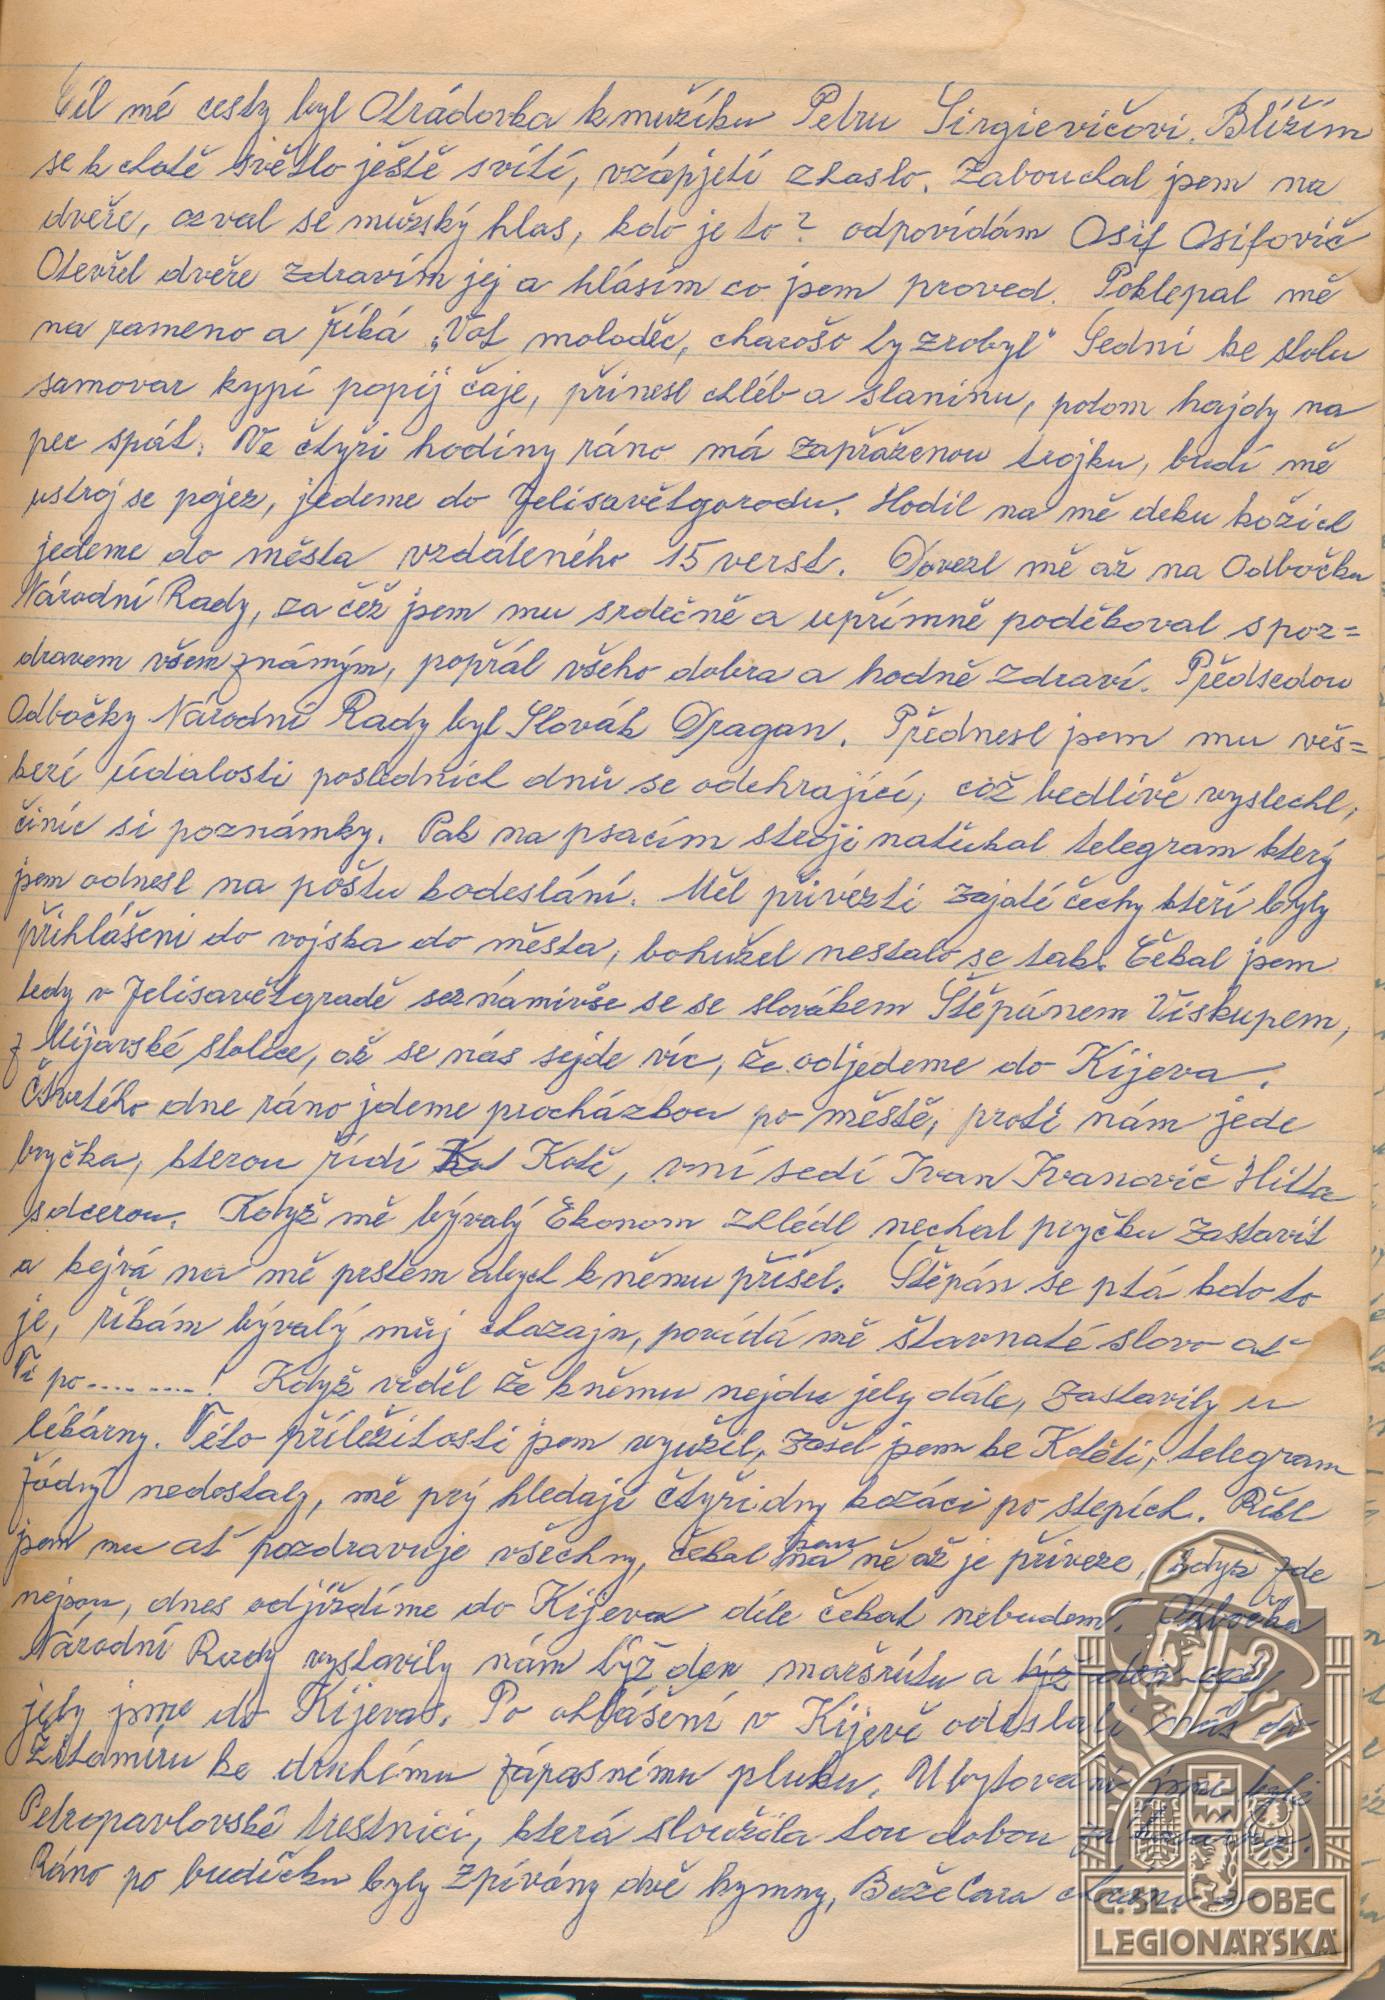 Cíl mé cesty byl Otrádovka k mužíku Petru Sirgievičovi. Blížím
se k chatě světlo ještě svítí, vzápjetí zhaslo. Zabouchal jsem na
dveře, ozval se mužský hlas, kdo je to? odpovídám Osif Osifovič
Otevřel dveře zdravím jej a hlásím co jsem proved. Poklepal mě
na rameno a říká „Vot moloděc, charošo ty zrobyl" Sedni ke stolu
samovar kypí popij čaje, přinesl chléb a slaninu, potom hajdy na
pec spát. Ve čtyři hodiny ráno má zapřaženou trojku, budí mě
ustroj se pojez, jedeme do Jelisavětgorodu. Hodil na mě deku kožich
jedeme do města vzdáleného 15 verst. Dovezl mě až na Odbočku
Národní Rady, za čež jsem mu srdečně a upřímně poděkoval s poz=
dravem všem známým, popřál všeho dobra a hodně zdraví. Předsedou
Odbočky Národní Rady byl Slovák Dragan. Přednesl jsem mu veš=
keré údalosti posledních dnů se odehrající, což bedlivě vyslechl,
činíc si poznámky. Pak na psacím stroji naťukal telegram který
jsem odnesl na poštu k odeslání. Měl přivézti zajaté čechy kteří byly
přihlášeni do vojska do města, bohužel nestalo se tak. Čekal jsem
tedy v Jelisavětgradě seznámivše se se slovákem Štěpánem Viskupem,
z Mijavské stolice, až se nás sejde víc, že odjedeme do Kijeva.
Čtvrtého dne ráno jdeme procházkou po městě, proti nám jede
bryčka, kterou řídí Kot Kotě, v ní sedí Ivan Ivanovič Hilla
s dcerou. Když mě bývalý Ekonom zhlédl nechal pryčku zastavit
a kejvá na mě prstem abych k němu přišel. Štěpán se ptá kdo to
je, říkám bývalý můj chazajn, povídá mě šťavnaté slovo ať
Ti po........! Když viděl že k němu nejdu jely dále, zastavily u
lékárny. Této příležitosti jsem využil, zašel jsem ke Kotěti, telegram
žádný nedostaly, mě prý hledají čtyři dny kozáci po stepích. Řekl
jsem mu ať pozdravuje všechny, čekal jsem na ně až je přiveze, když zde
nejsou, dnes odjíždíme do Kijeva déle čekat nebudem. Odbočka
Národní Rady vystavily nám týž den maršrútu a týž den
jely jsme do Kijeva. Po ohlášení v Kijevě odeslali nás do
Žitomíru ke druhému zápasnému pluku. Ubytováni jsme byli
Petropavlovské trestnici, která sloužila tou dobou za
Ráno po budíčku byly zpívány dvě hymny, Bože Cara chrani
Č. SL. OBEC
LEGIONÁŘSKÁ